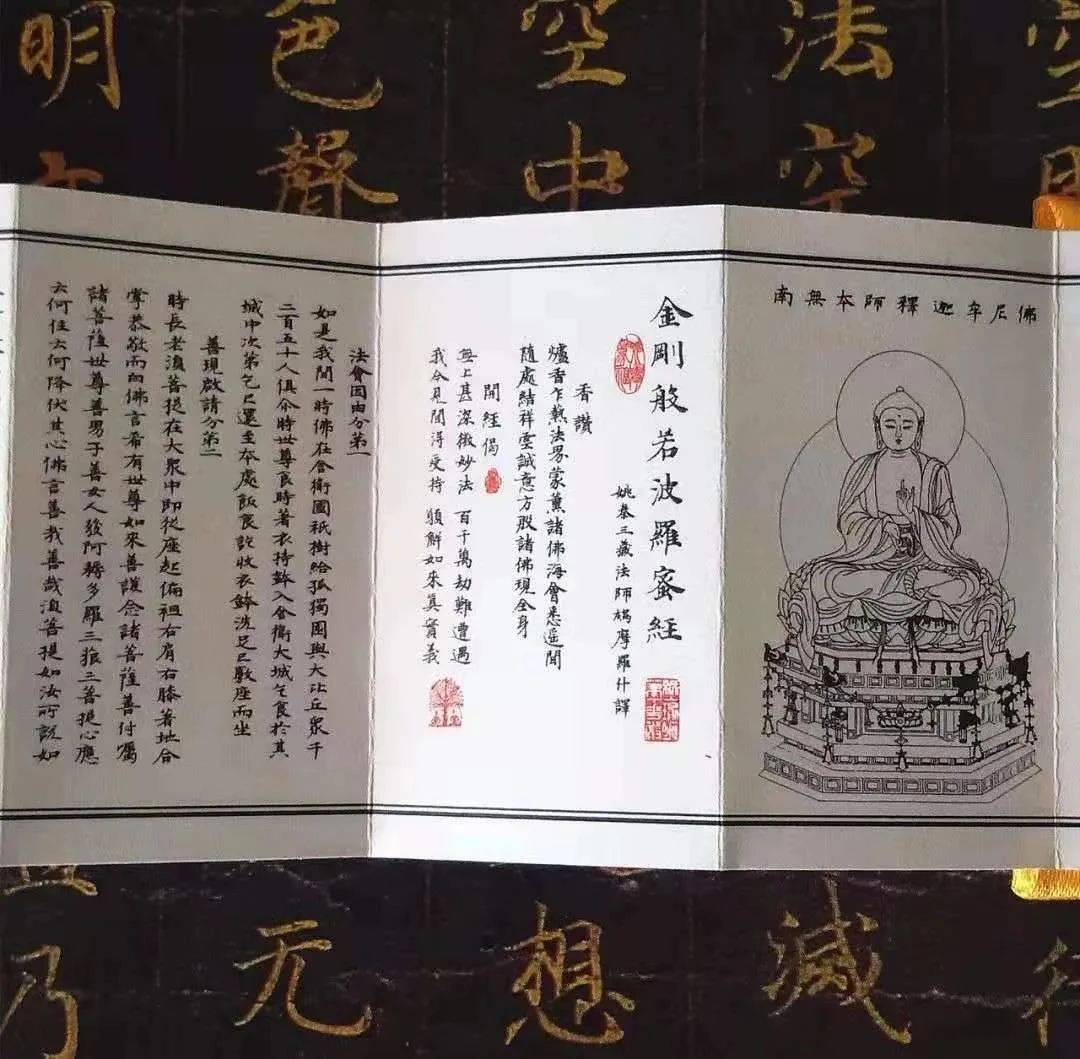 南無本師釋迦牟尼佛
金剛般若波羅蜜經
姚秦三藏法師鳩摩羅什譯
香讚
爐香乍爇法界蒙薰諸佛海會悉遥聞
隨處結祥雲誠意方殷諸佛現全身
開經偈
無上甚深微妙法 百千萬劫難遭遇
我今見聞得受持 願解如來真實義
法會因由分第一
如是我聞一時佛在舍衛國祇樹給孤獨園與大比丘眾千
二百五十人俱尒時世尊食時著衣持鉢入舍衛大城乞食於其
城中次第乞已還至本處飯食訖收衣鉢洗足已敷座而坐
善現啟請分第二
時長老湏菩提在大眾中即從座起偏袒右肩右膝著地合
掌恭敬而白佛言希有世尊如來善護念諸菩薩善付囑
諸菩薩世尊善男子善女人發阿耨多羅三藐三菩提心應
云何住云何降伏其心佛言善哉善哉湏菩提如汝所說如
法空
減
空中
想
色聲
无
明
乃